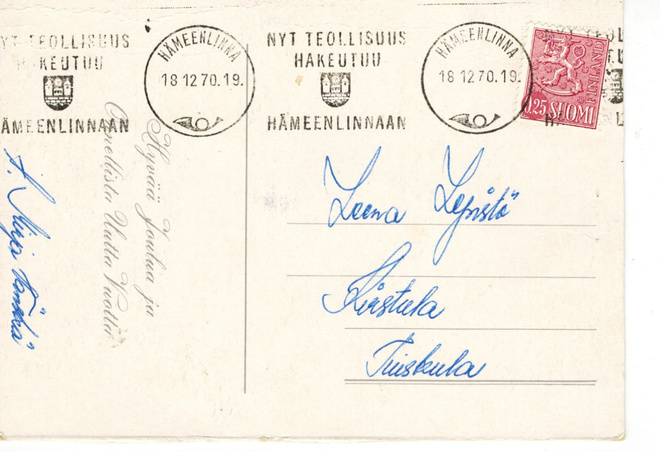 NYT TEOLLISUUS
HAKEUTUU
HÄMEENLINNAAN
HÄMEENLINNA
18.12.70.19.
NYT TEOLLISUUS
HAKEUTUU
HÄMEENLINNAAN
HÄMEENLINNA
18.12.70.19.
0,25 SUOMI
FINLAND
Hyvää Joulua ja
Onnellista Uutta Vuotta
Leena Lepistö
Tuiskula